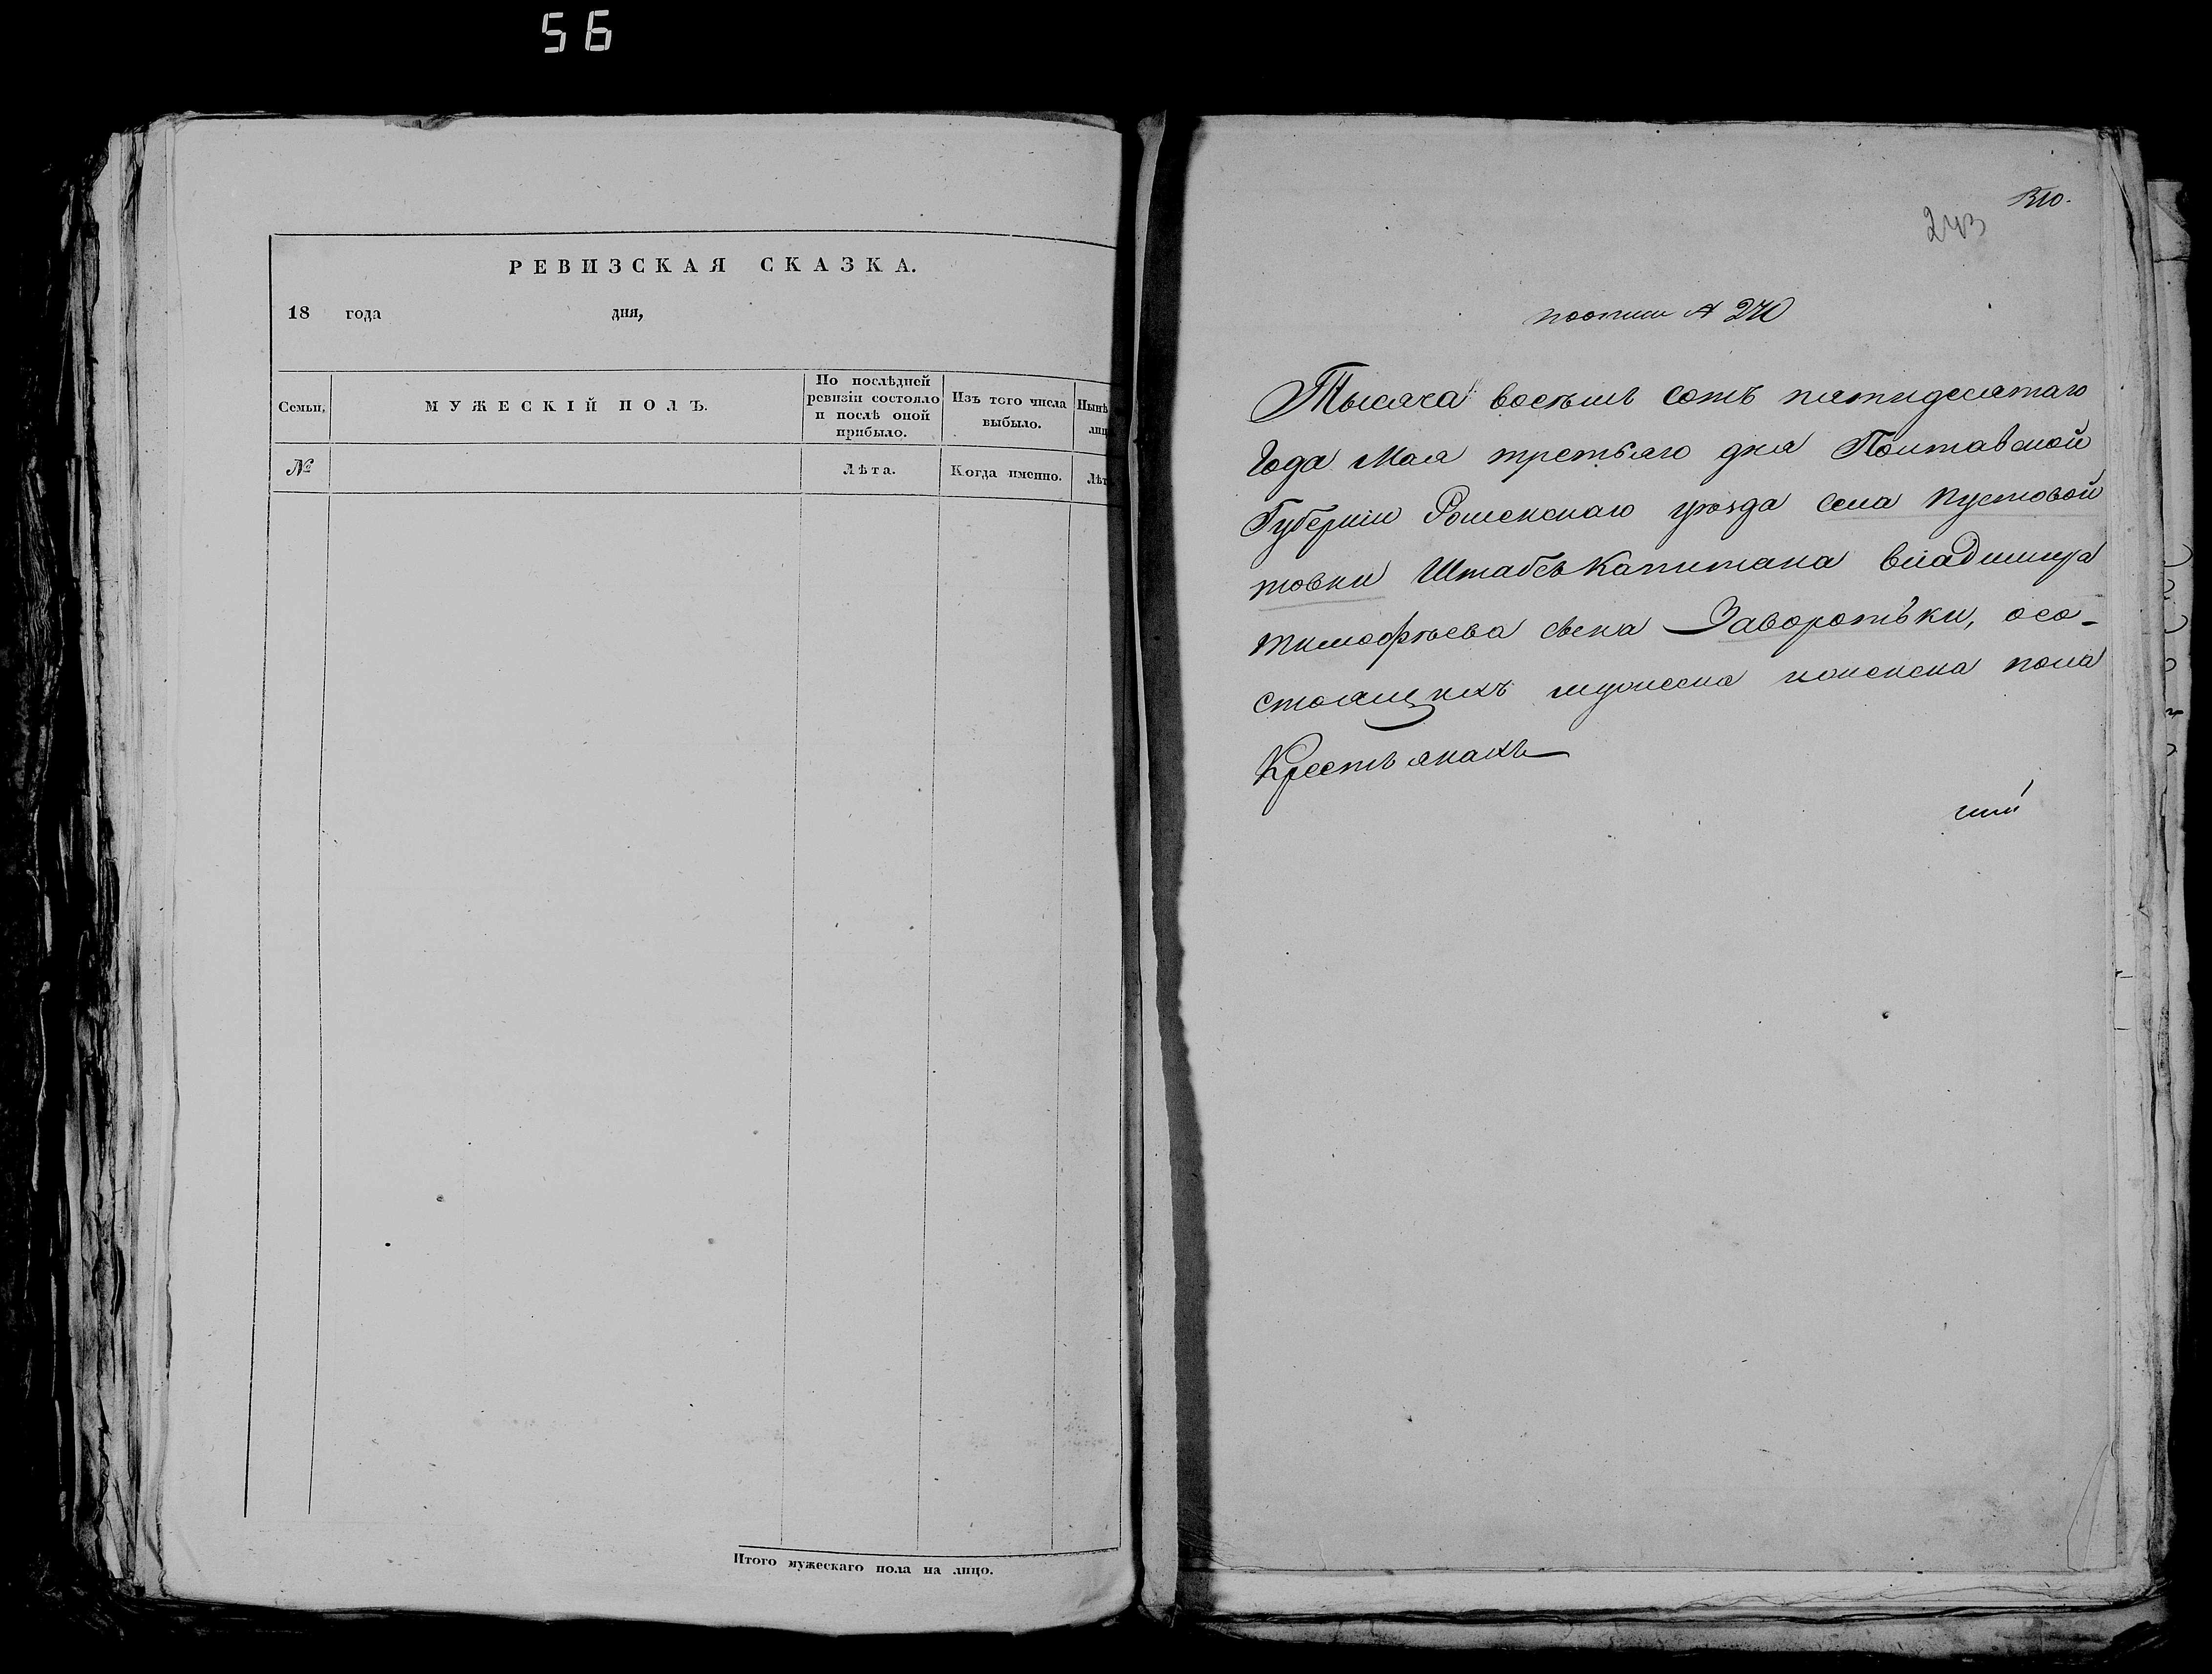 56
РЕВИЗСКАЯ СКАЗКА.
18 года дня,
Семьи,
МУЖЕСКІЙ ПОЛЪ.
По послѣдней
ревизіи состояло
и послѣ оной
прибыло.
Изъ того числа
выбыло.
Нынѣ
лиц
№
Лѣта.
Когда именно.
Лѣт
Итого мужескаго пола на лицо.
243
270
Тысяча восѣмь сотъ пятидесятаго
Года Мая третьяго дня Полтавской
Губерніи Роменскаго уѣзда села Пустовой
товки Штабсъ Капитана Владимира
Тимофѣева сына Заворотьки, осо-
стоящихъ мужеска женска пола
Крестьянахъ